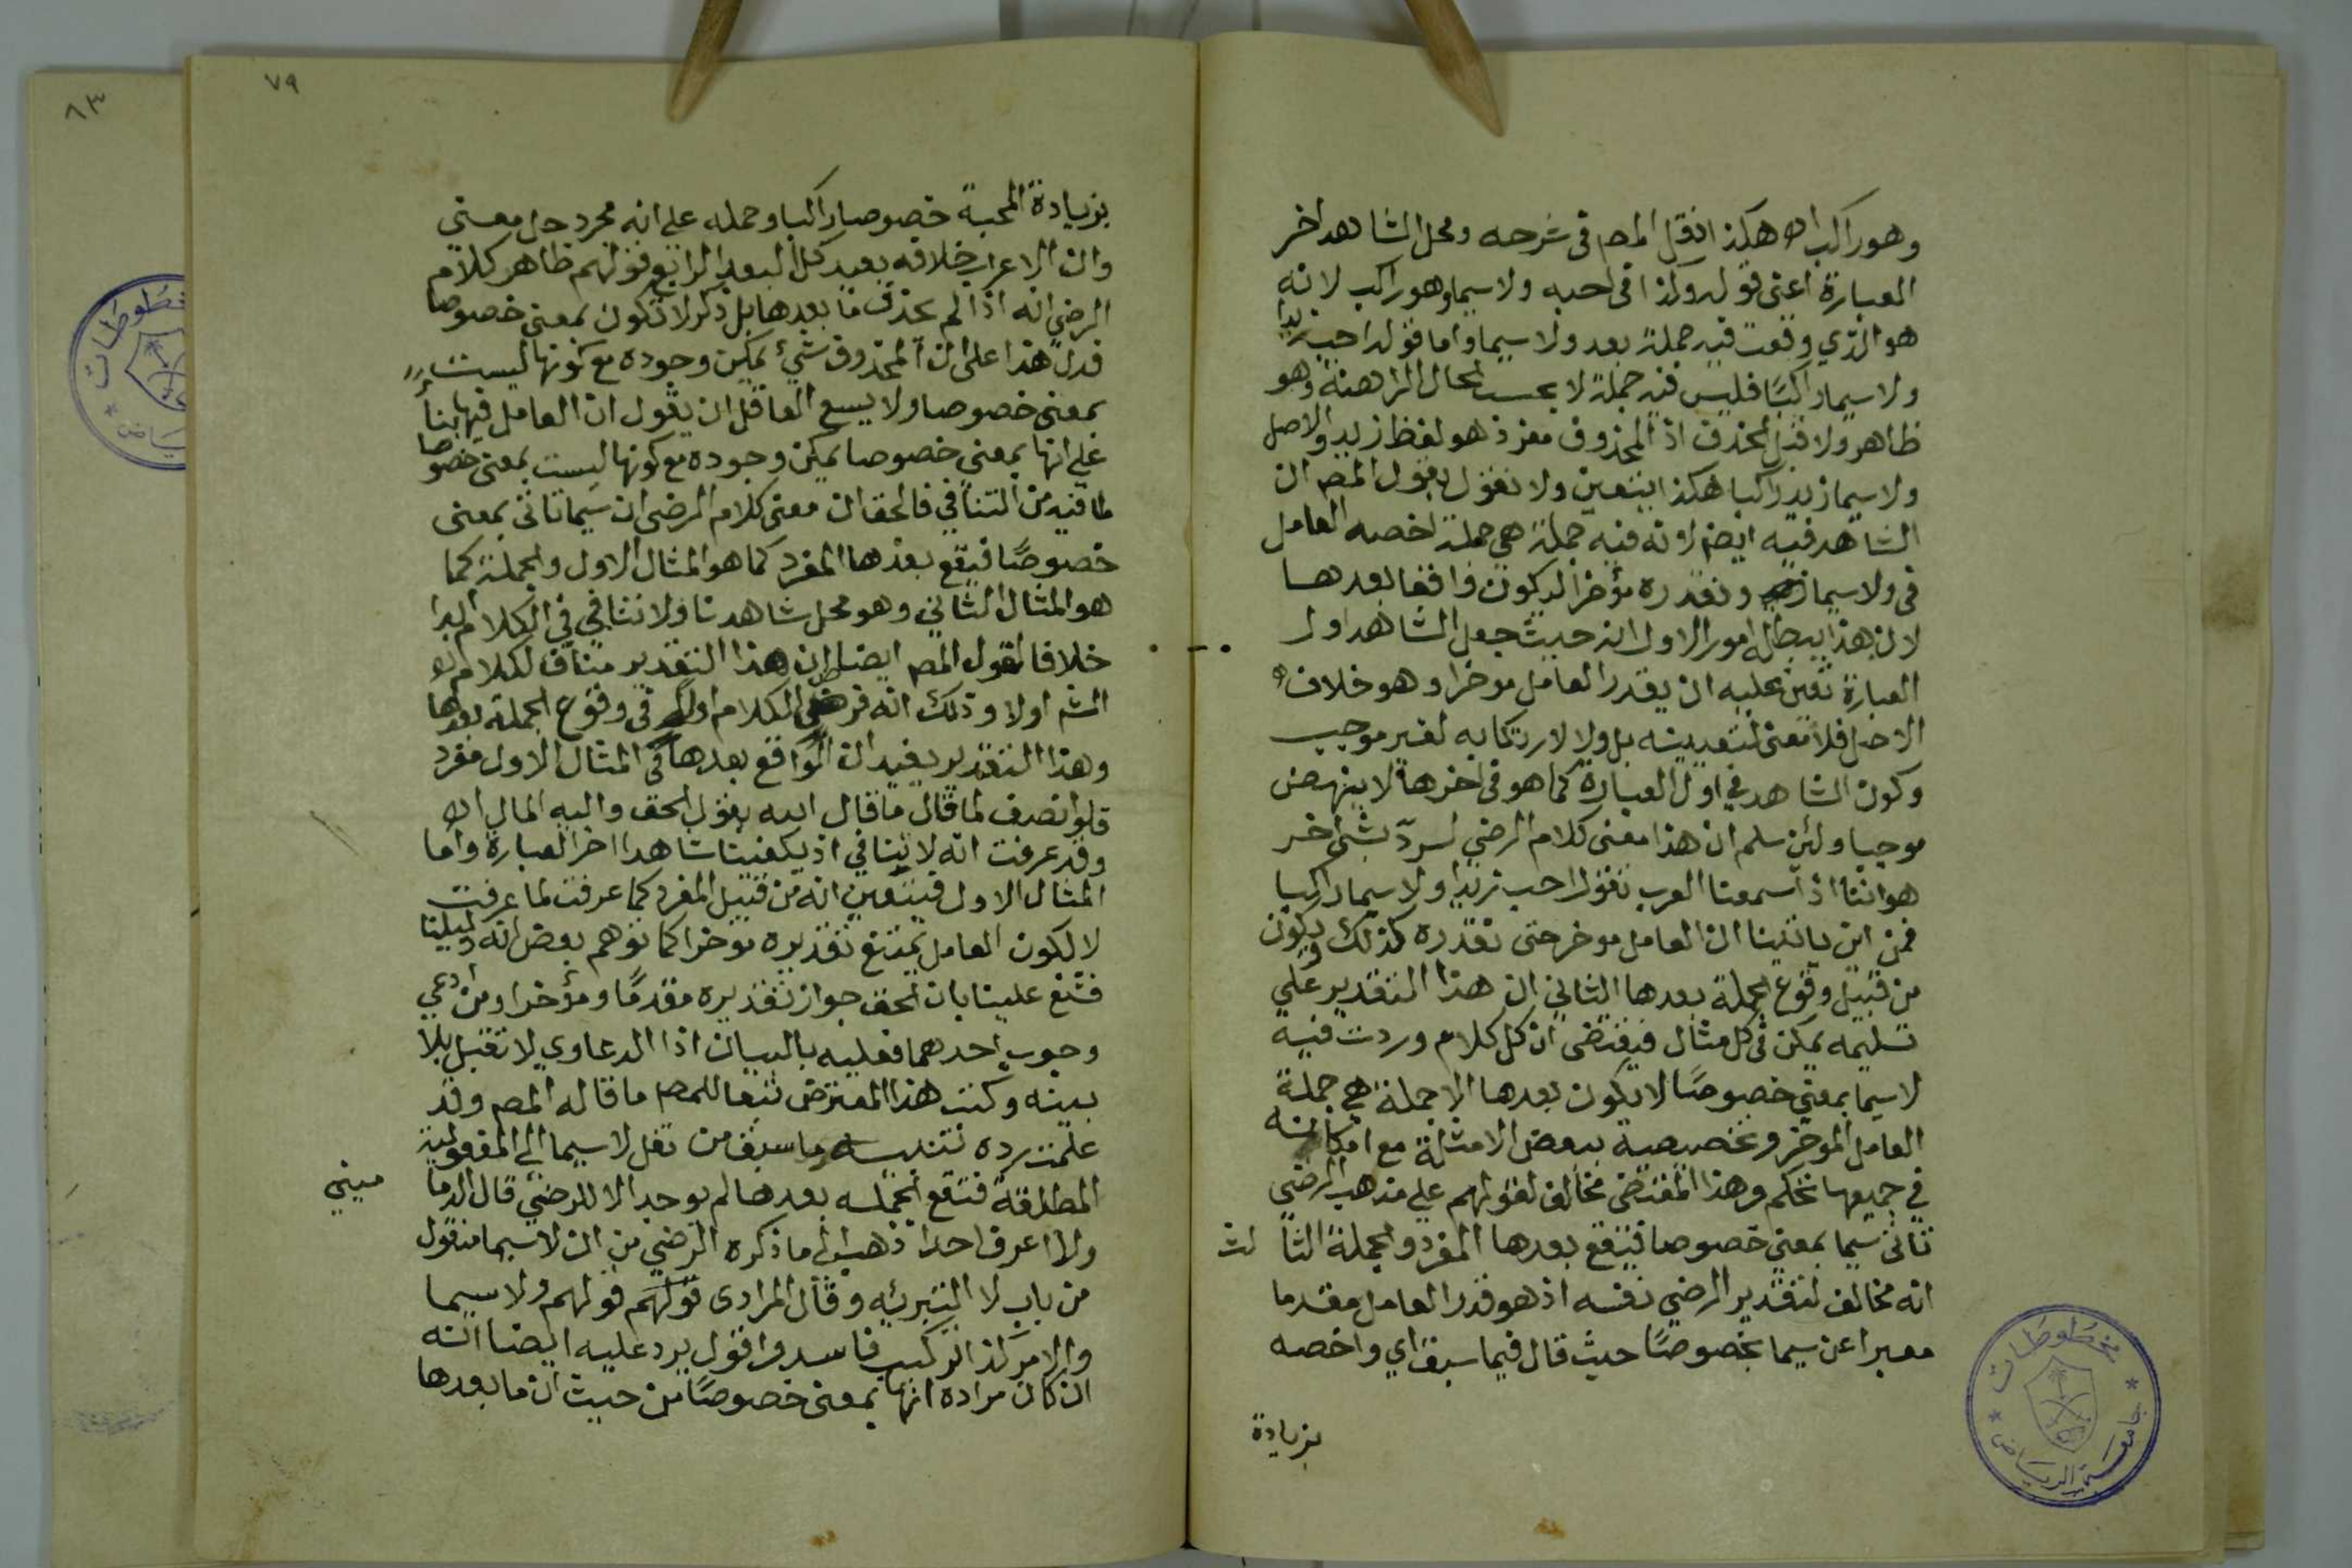 وهو راكب اه هكذا نقل المصم في شرحه ومحل الشاهد اخر
العبارة اعني قوله وكذا في احبه ولا سيما وهو راكب لانه
هو الذي وقعت فيه جملة بعد ولا سيما واما قوله احب زيدا
ولا سيما راكبًا فليس فيه جملة لا بحسب الحال الراهنة وهو
ظاهر ولا قبل الحذف اذ المحذوف مفرد هو لفظ زيد والاصل
ولا سيما زيد راكبا هكذا يتعين ولا نقول بقول المصم ان
الشاهد فيه ايضا لانه فيه جملة هي جملة اخصه العامل
في ولا سيما ونقدره مؤخرا ليكون واقعا بعدها
لان هذا يبطله امور الاول انه حيث جعل الشاهد اول
العبارة تعين عليه ان يقدر العامل موخرا وهو خلاف
الاصل فلا معنى لتعيينه بل ولا لارتكابه لغير موجب
وكون الشاهد في اول العبارة كما هو في اخرها لا ينهض
موجبا ولئن سلم ان هذا معنى كلام الرضي لسرد بشئ اخر
هو اننا اذا سمعنا العرب تقول احب زيدا ولا سيما راكبا
فمن اين ياتينا ان العامل موخر حتى نقدره كذلك ويكون
من قبيل وقوع الجملة بعدها الثاني ان هذا التقدير علي
تسليمه يمكن في كل مثال فيقتضي ان كل كلام وردت فيه
لا سيما بمعني خصوصًا لا يكون بعدها الا جملة هي جملة
العامل الموخر وتخصيصه ببعض الامثلة مع امكانه
في جميعها تحكم وهذا المقتضى مخالف لقولهم علي مذهب الرضي
تاتي سيما بمعني خصوصا فيقع بعدها المفرد والجملة الثا لث
انه مخالف لتقدير الرضي نفسه اذ هو قدر العامل مقدما
معبرا عن سيما بخصوصًا حيث قال فيما سبق اي واخصه
بزيادة
مخطوطات
جامعة الرياض
٧٩
بزيادة المحبة خصوصا راكبا وحمله على انه مجرد حل معني
وان الاعراب خلافه بعيد كل البعد الرابع قولهم ظاهر كلام
الرضي انه اذا لم يحذف ما بعدها بل ذكر لا تكون بمعني خصوصا
فدل هذا على ان المحذوف شيء يمكن وجوده مع كونها ليست
بمعنى خصوصا ولا يسع العاقل ان يقول ان العامل فيها بناً
على انها بمعني خصوصا يمكن وجوده مع كونها ليست بمعني خصوصا
لما فيه من التنافي فالحق ان معنى كلام الرضي ان سيما تاتي بمعنى
خصوصًا فيقع بعدها المفرد كما هو المثال الاول والجملة كما
هو المثال الثاني وهو محل شاهدنا ولا تنافي في الكلام ابدا
خلافا لقول المصم ايضا ان هذا التقدير مناف لكلام
الشم اولا وذلك انه فرض الكلام اولا في وقوع الجملة بعدها
وهذا التقدير يفيد ان الواقع بعدها في المثال الاول مفرد
فلو انصف لما قال ما قال الله يقول الحق واليه المال اه
وقد عرفت انه لا تنافي اذ يكفينا شاهدا اخر العبارة واما
المثال الاول فيتعين انه من قبيل المفرد كما عرفت لما عرفت
لا لكون العامل يمتنع تقديره موخرا كما توهم بعض انه دليلنا
فشنع علينا بان الحق جواز تقديره مقدمًا ومؤخرا ومن ادعي
وجوب احدهما فعليه بالبيان اذ الدعاوي لا تقبل بلا
بينه وكنت هذا المعترض تبعا للمصم ما قاله المصم وقد
علمت رده تنبيه ما سبق من نقل لا سيما الى المفعولية
المطلقة فتقع الجملة بعدها لم يوجد الا للرضي قال الدما ميني
ولا اعرف احدا ذهب الي ما ذكره الرضي من ان لا سيما منقول
من باب لا التبرئه وقال المرادي قولهم قولهم ولا سيما
والامر كذا تركيب فاسد واقول يرد عليه ايضا انه
ان كان مراده انها بمعنى خصوصًا من حيث ان ما بعدها
٨٣